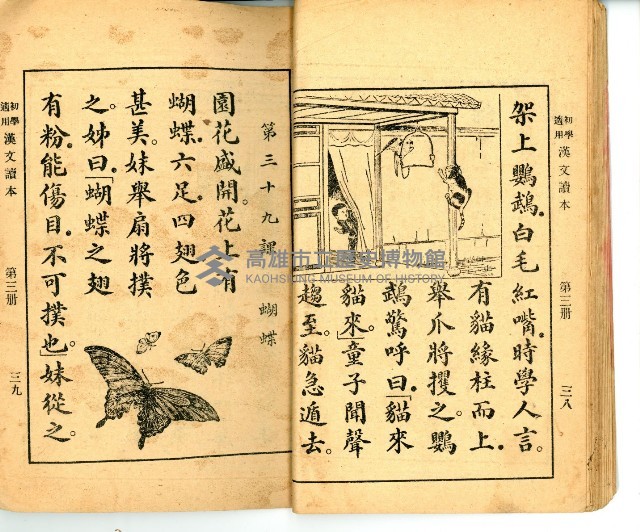 初學
適用
漢文讀本
第三册
三八
架上鸚鵡。白毛紅嘴。時學人言。
有貓緣柱而上。
舉爪將攫之。鸚
鵡驚呼曰。「貓來
貓來。」童子聞聲
趨至。貓急遁去。
第三十九課 蝴蝶
園花盛開。花上有
蝴蝶。六足四翅色
甚美。妹舉扇將撲
之。姊曰。「蝴蝶之翅
有粉能傷目。不可撲也。」妹從之。
初學
適用
漢文讀本
第三册
三九
高雄市立歷史博物館
KAOHSIUNG MUSEUM OF HISTORY